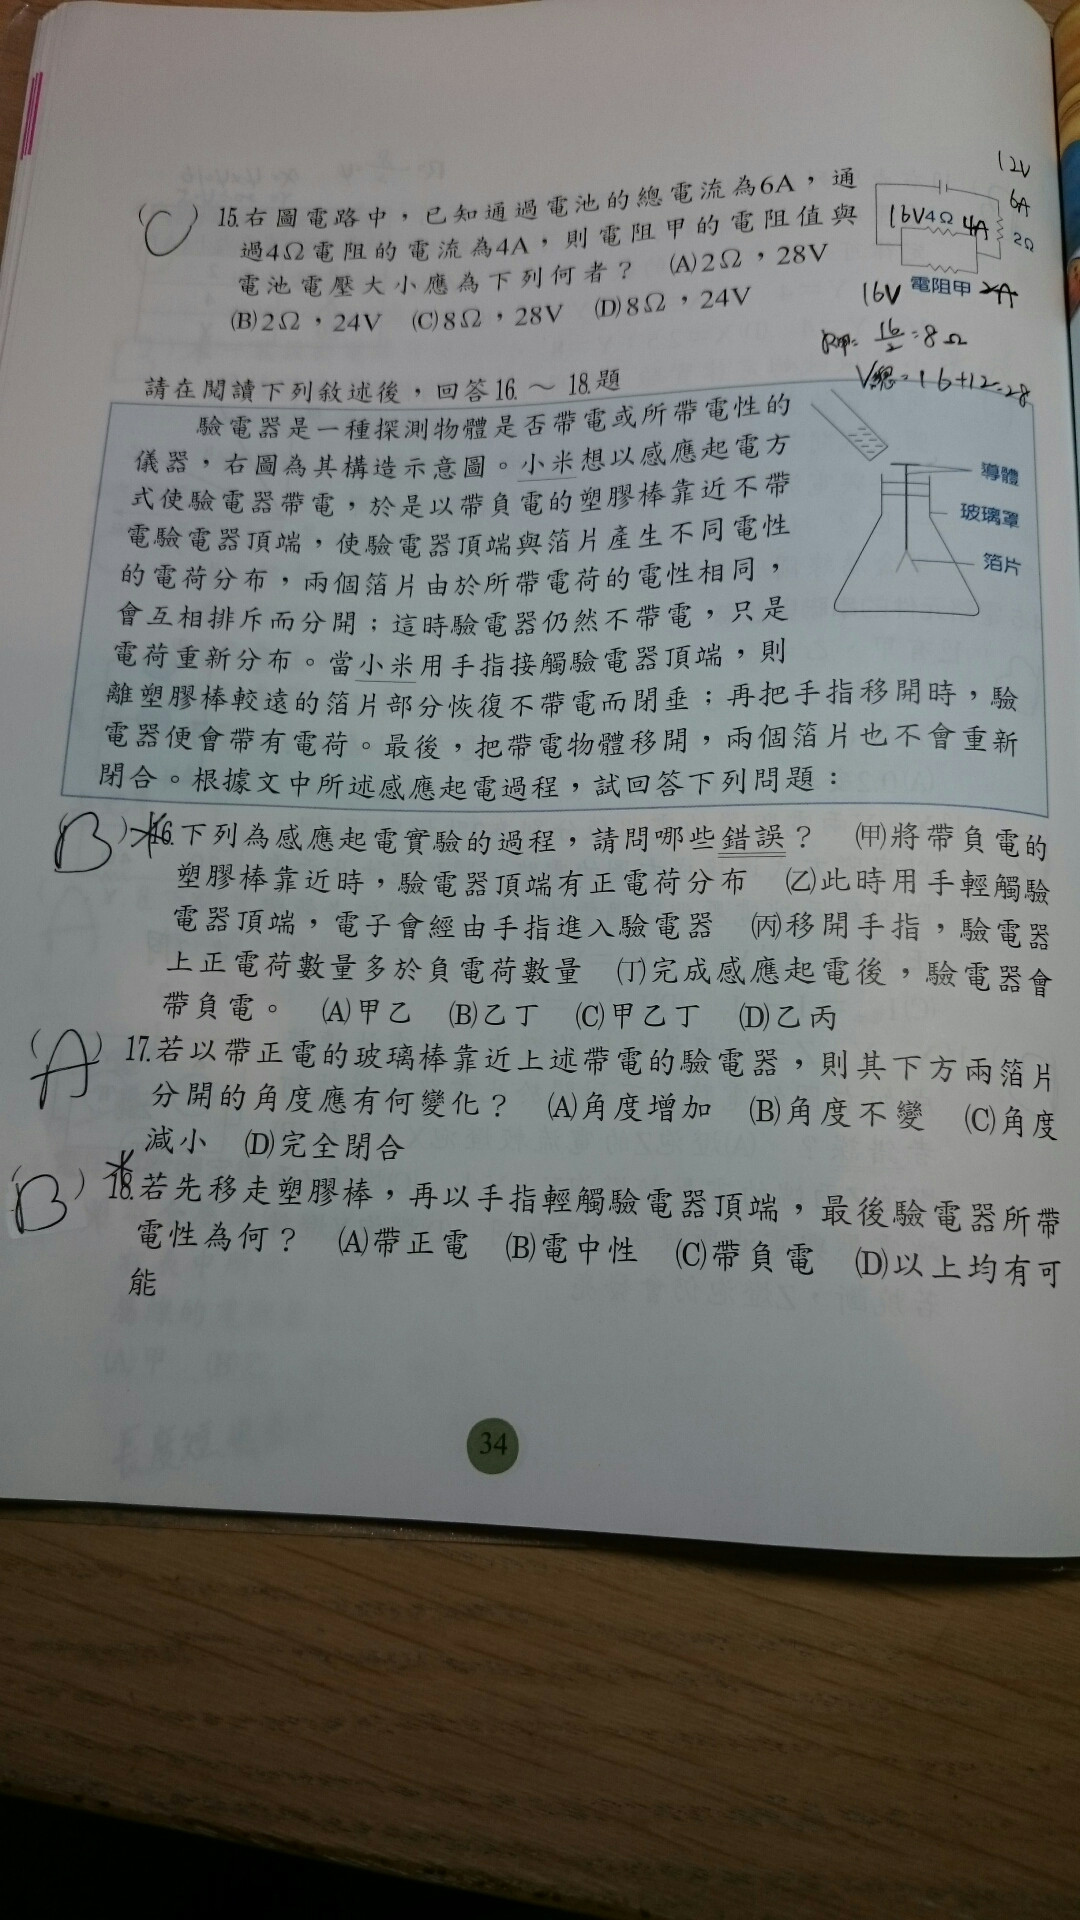 (C) 15.右圖電路中，已知通過電池的總電流為6A，通
過4Ω電阻的電流為4A，則電阻甲的電阻值與
電池電壓大小應為下列何者？ (A)2Ω，28V
(B)2Ω，24V (C)8Ω，28V (D)8Ω，24V
12V
6A
16V 4Ω 4A
2Ω
16V 電阻甲 2A
R甲=16/2=8Ω
V總=16+12=28
請在閱讀下列敘述後，回答16. ～ 18.題
驗電器是一種探測物體是否帶電或所帶電性的
儀器，右圖為其構造示意圖。小米想以感應起電方
式使驗電器帶電，於是以帶負電的塑膠棒靠近不帶
電驗電器頂端，使驗電器頂端與箔片產生不同電性
的電荷分布，兩個箔片由於所帶電荷的電性相同，
會互相排斥而分開；這時驗電器仍然不帶電，只是
電荷重新分布。當小米用手指接觸驗電器頂端，則
離塑膠棒較遠的箔片部分恢復不帶電而閉垂；再把手指移開時，驗
電器便會帶有電荷。最後，把帶電物體移開，兩個箔片也不會重新
閉合。根據文中所述感應起電過程，試回答下列問題：
導體
玻璃罩
箔片
(B) 16.下列為感應起電實驗的過程，請問哪些錯誤？ (甲)將帶負電的
塑膠棒靠近時，驗電器頂端有正電荷分布 (乙)此時用手輕觸驗
電器頂端，電子會經由手指進入驗電器 (丙)移開手指，驗電器
上正電荷數量多於負電荷數量 (丁)完成感應起電後，驗電器會
帶負電。 (A)甲乙 (B)乙丁 (C)甲乙丁 (D)乙丙
(A) 17.若以帶正電的玻璃棒靠近上述帶電的驗電器，則其下方兩箔片
分開的角度應有何變化？ (A)角度增加 (B)角度不變 (C)角度
減小 (D)完全閉合
(B) 18.若先移走塑膠棒，再以手指輕觸驗電器頂端，最後驗電器所帶
電性為何？ (A)帶正電 (B)電中性 (C)帶負電 (D)以上均有可
能
34